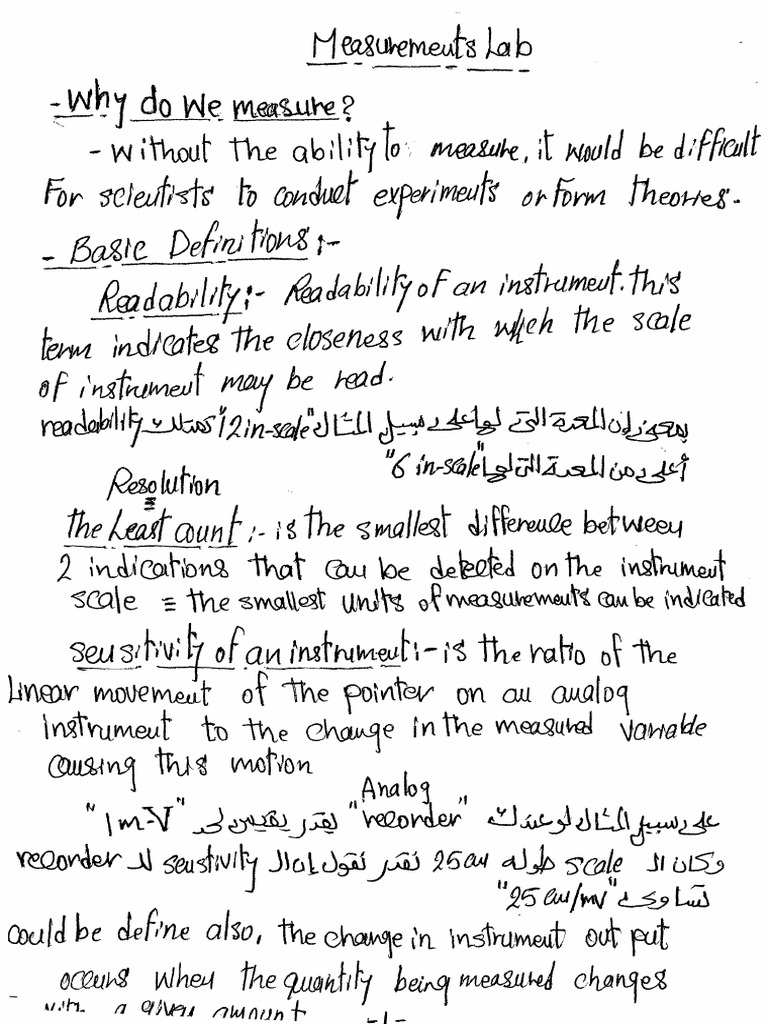 Measurements Lab
- Why do we measure?
- without the ability to measure, it would be difficult
For scientists to conduct experiments or form theories.
- Basic Definitions :-
Readability :- Readability of an instrument. this
term indicates the closeness with which the scale
of instrument may be read.
بمعنى إن المعدة التي لها على سبيل المثال "12 in-scale" أكتلك readability
أعلى من المعدة التي لها "6 in-scale"
Resolution
≡
the Least count :- is the smallest difference between
2 indications that can be detected on the instrument
scale ≡ the smallest units of measurements can be indicated
sensitivity of an instrument :- is the ratio of the
Linear movement of the pointer on an analog
instrument to the change in the measured variable
causing this motion
Analog
على سبيل المثال لو عندك "recorder" يقدر يقيس لحد "1 m-V"
وكان ال scale طوله 25 cm نقدر نقول إن ال seustivity لل recorder
تساوي "25 cm/mV"
could be define also, the change in instrument out put
occurs when the quantity being measured changes
with a given amount
-1-